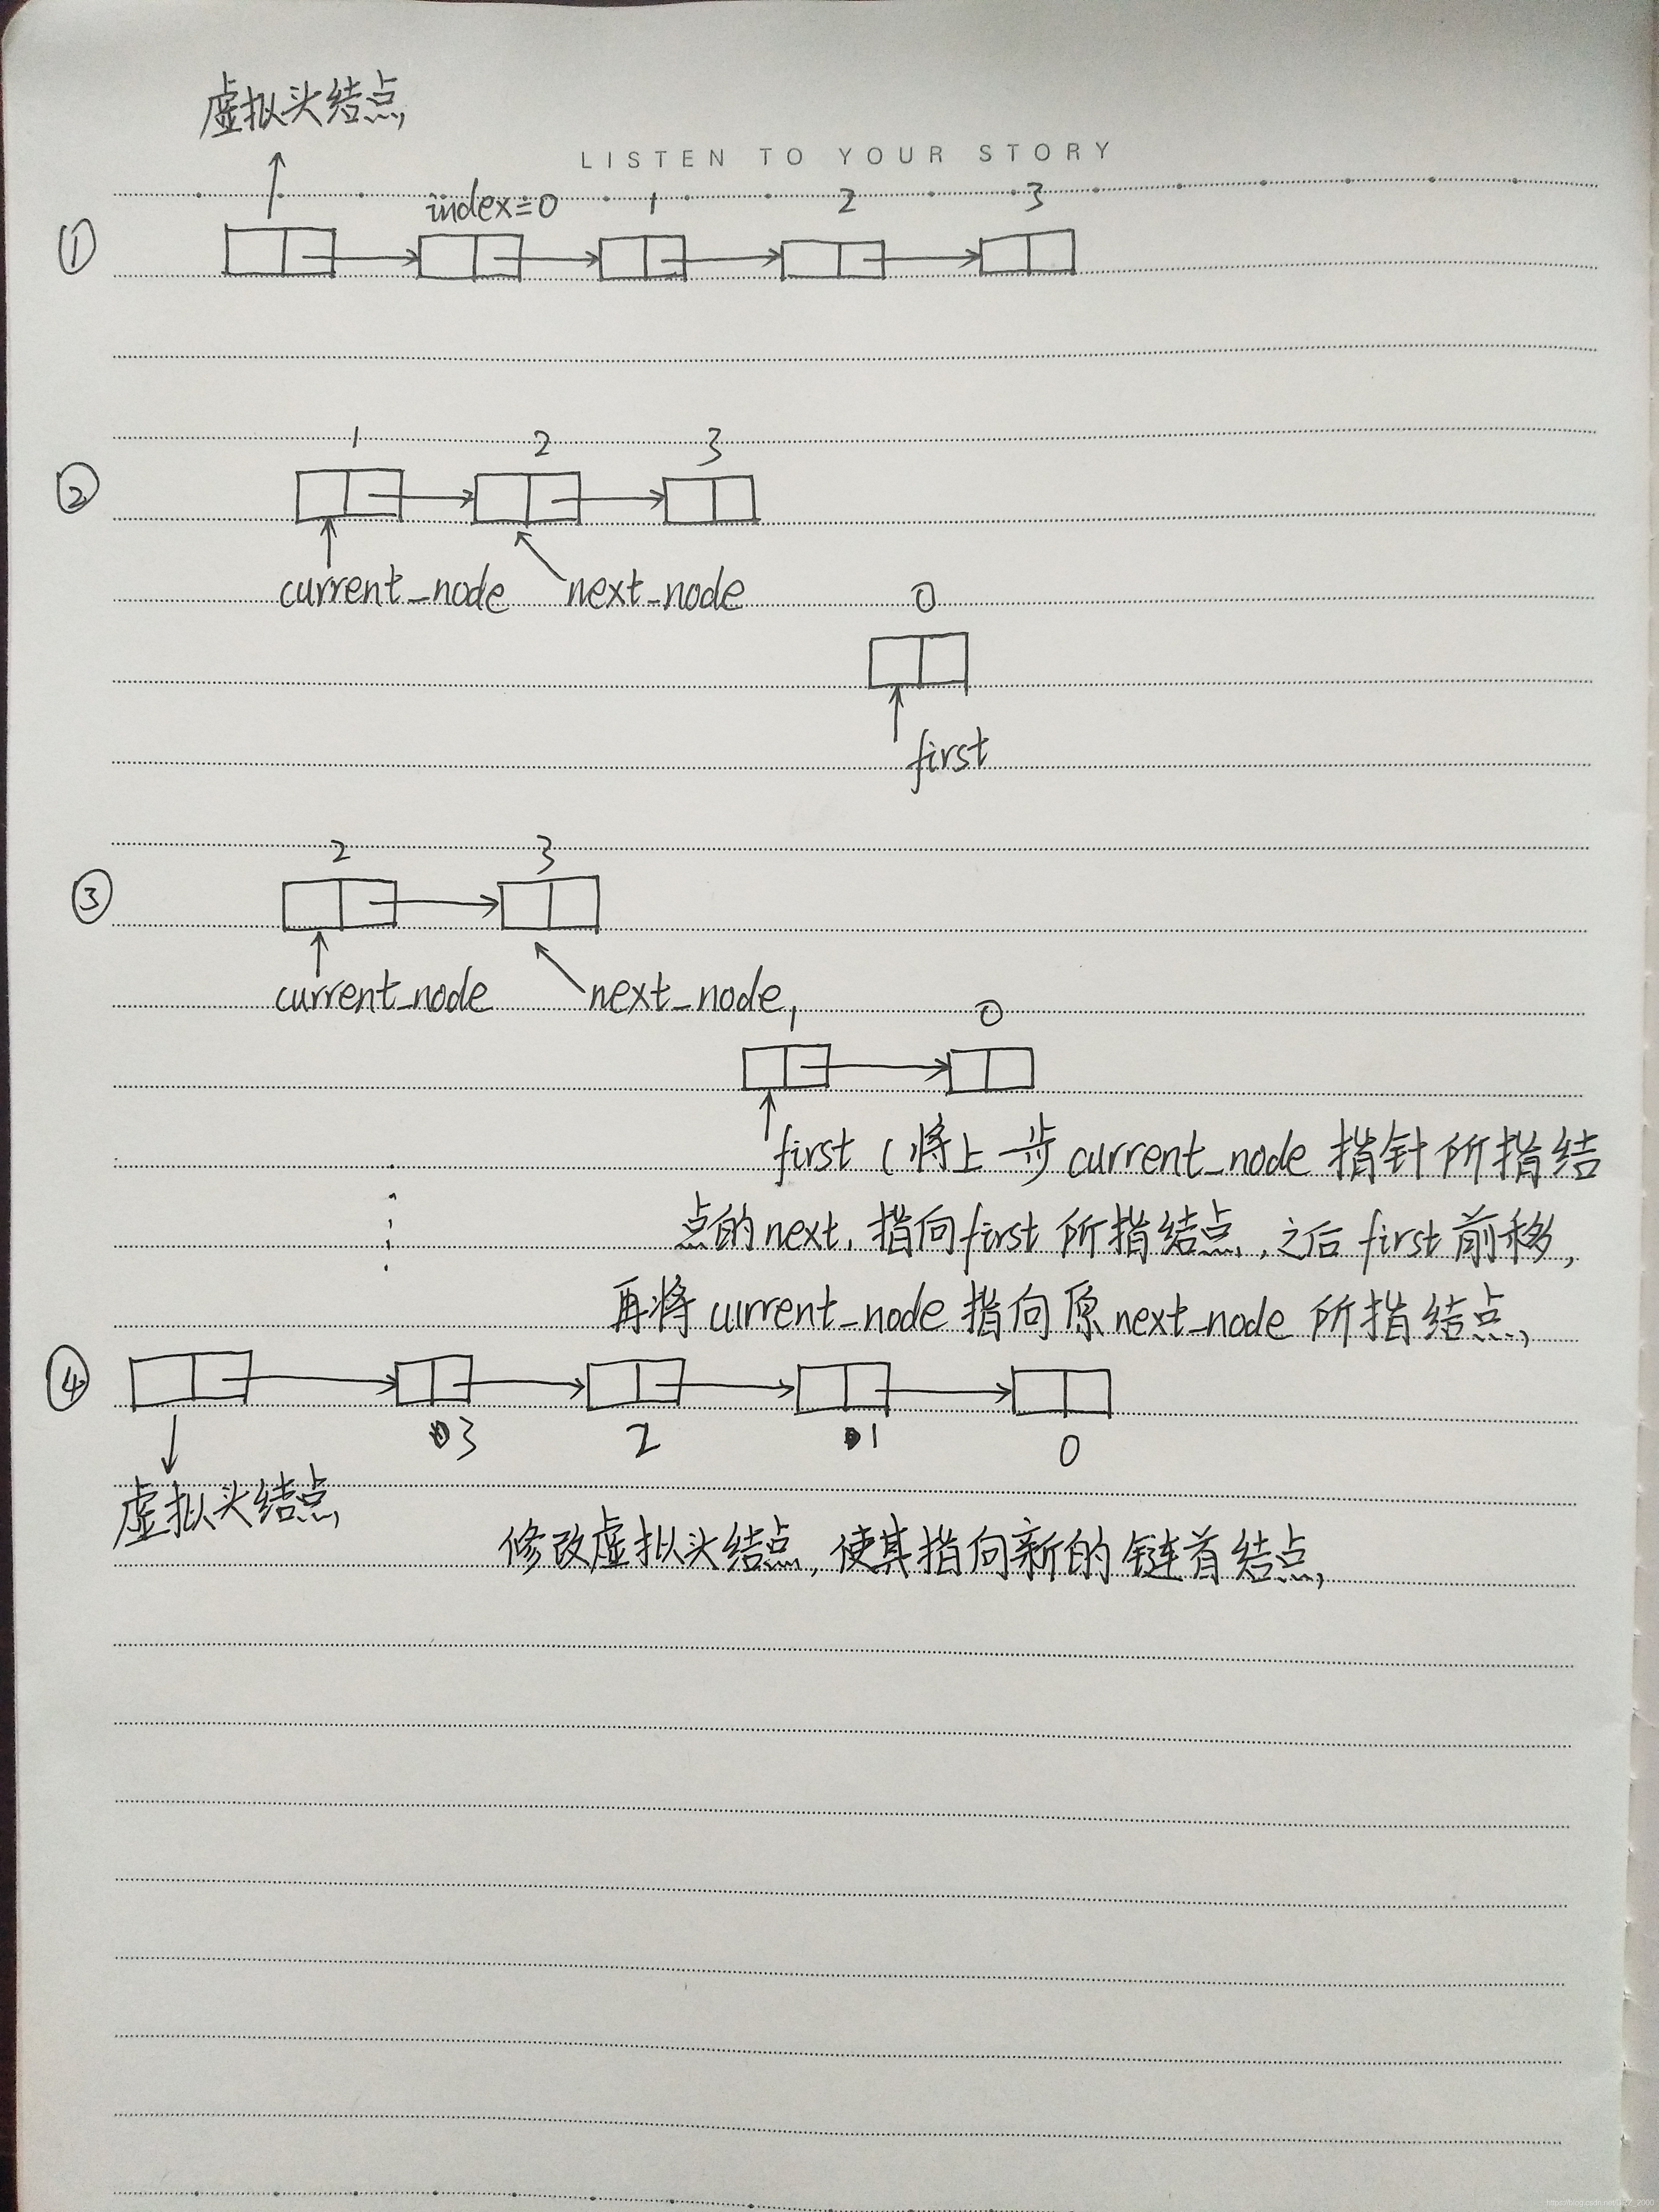 虚拟头结点
LISTEN TO YOUR STORY
index=0 1 2 3
①
1 2 3
②
current_node next_node
0
first
2 3
③
current_node next_node
1 0
first (将上一步 current_node 指针所指结
点的next, 指向first 所指结点, 之后 first 前移,
再将 current_node 指向原 next_node 所指结点
④
3 2 1 0
虚拟头结点
修改虚拟头结点, 使其指向新的链首结点